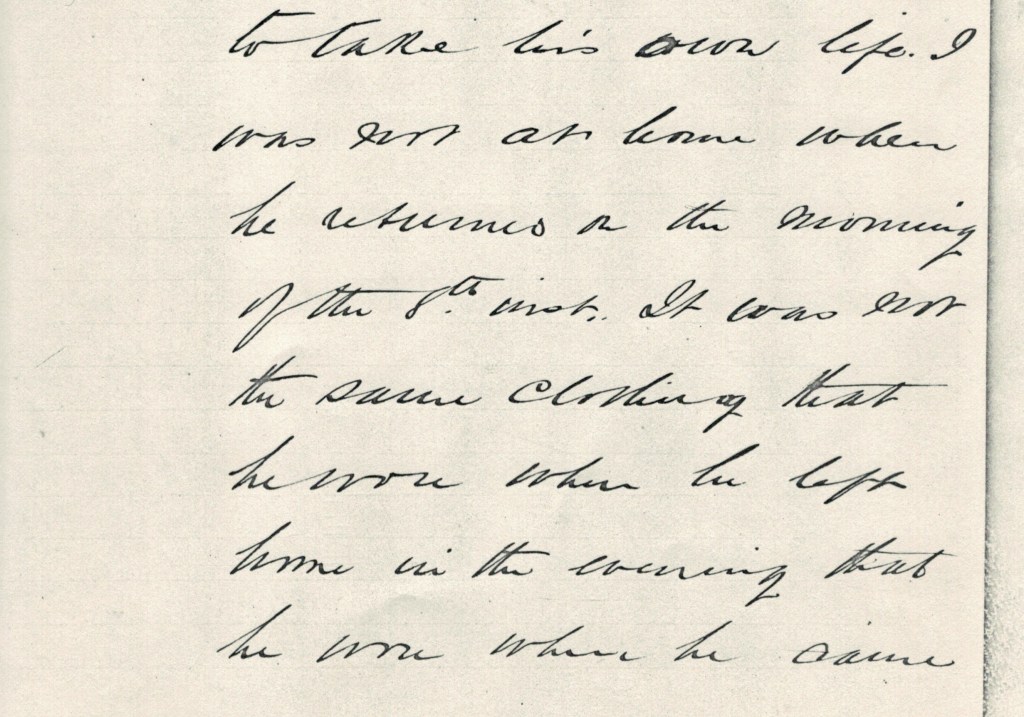 to take his own life. I
was not at home when
he returned on the morning
of the 8th. inst. It was not
the same clothing that
he wore when he left
home in the evening that
he wore when he came